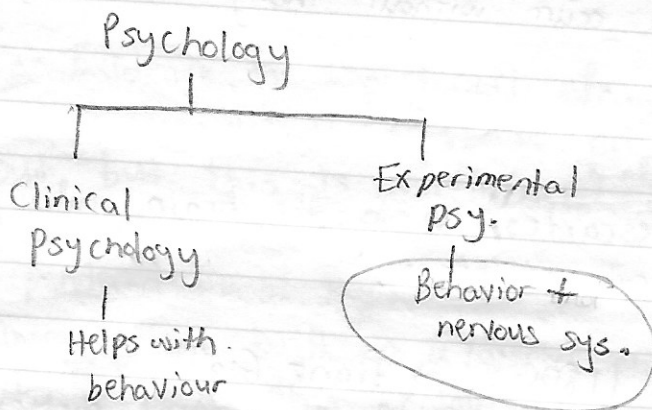 Psychology
Clinical
Psychology
Helps with.
behaviour
Experimental
psy.
Behavior +
nervous sys.